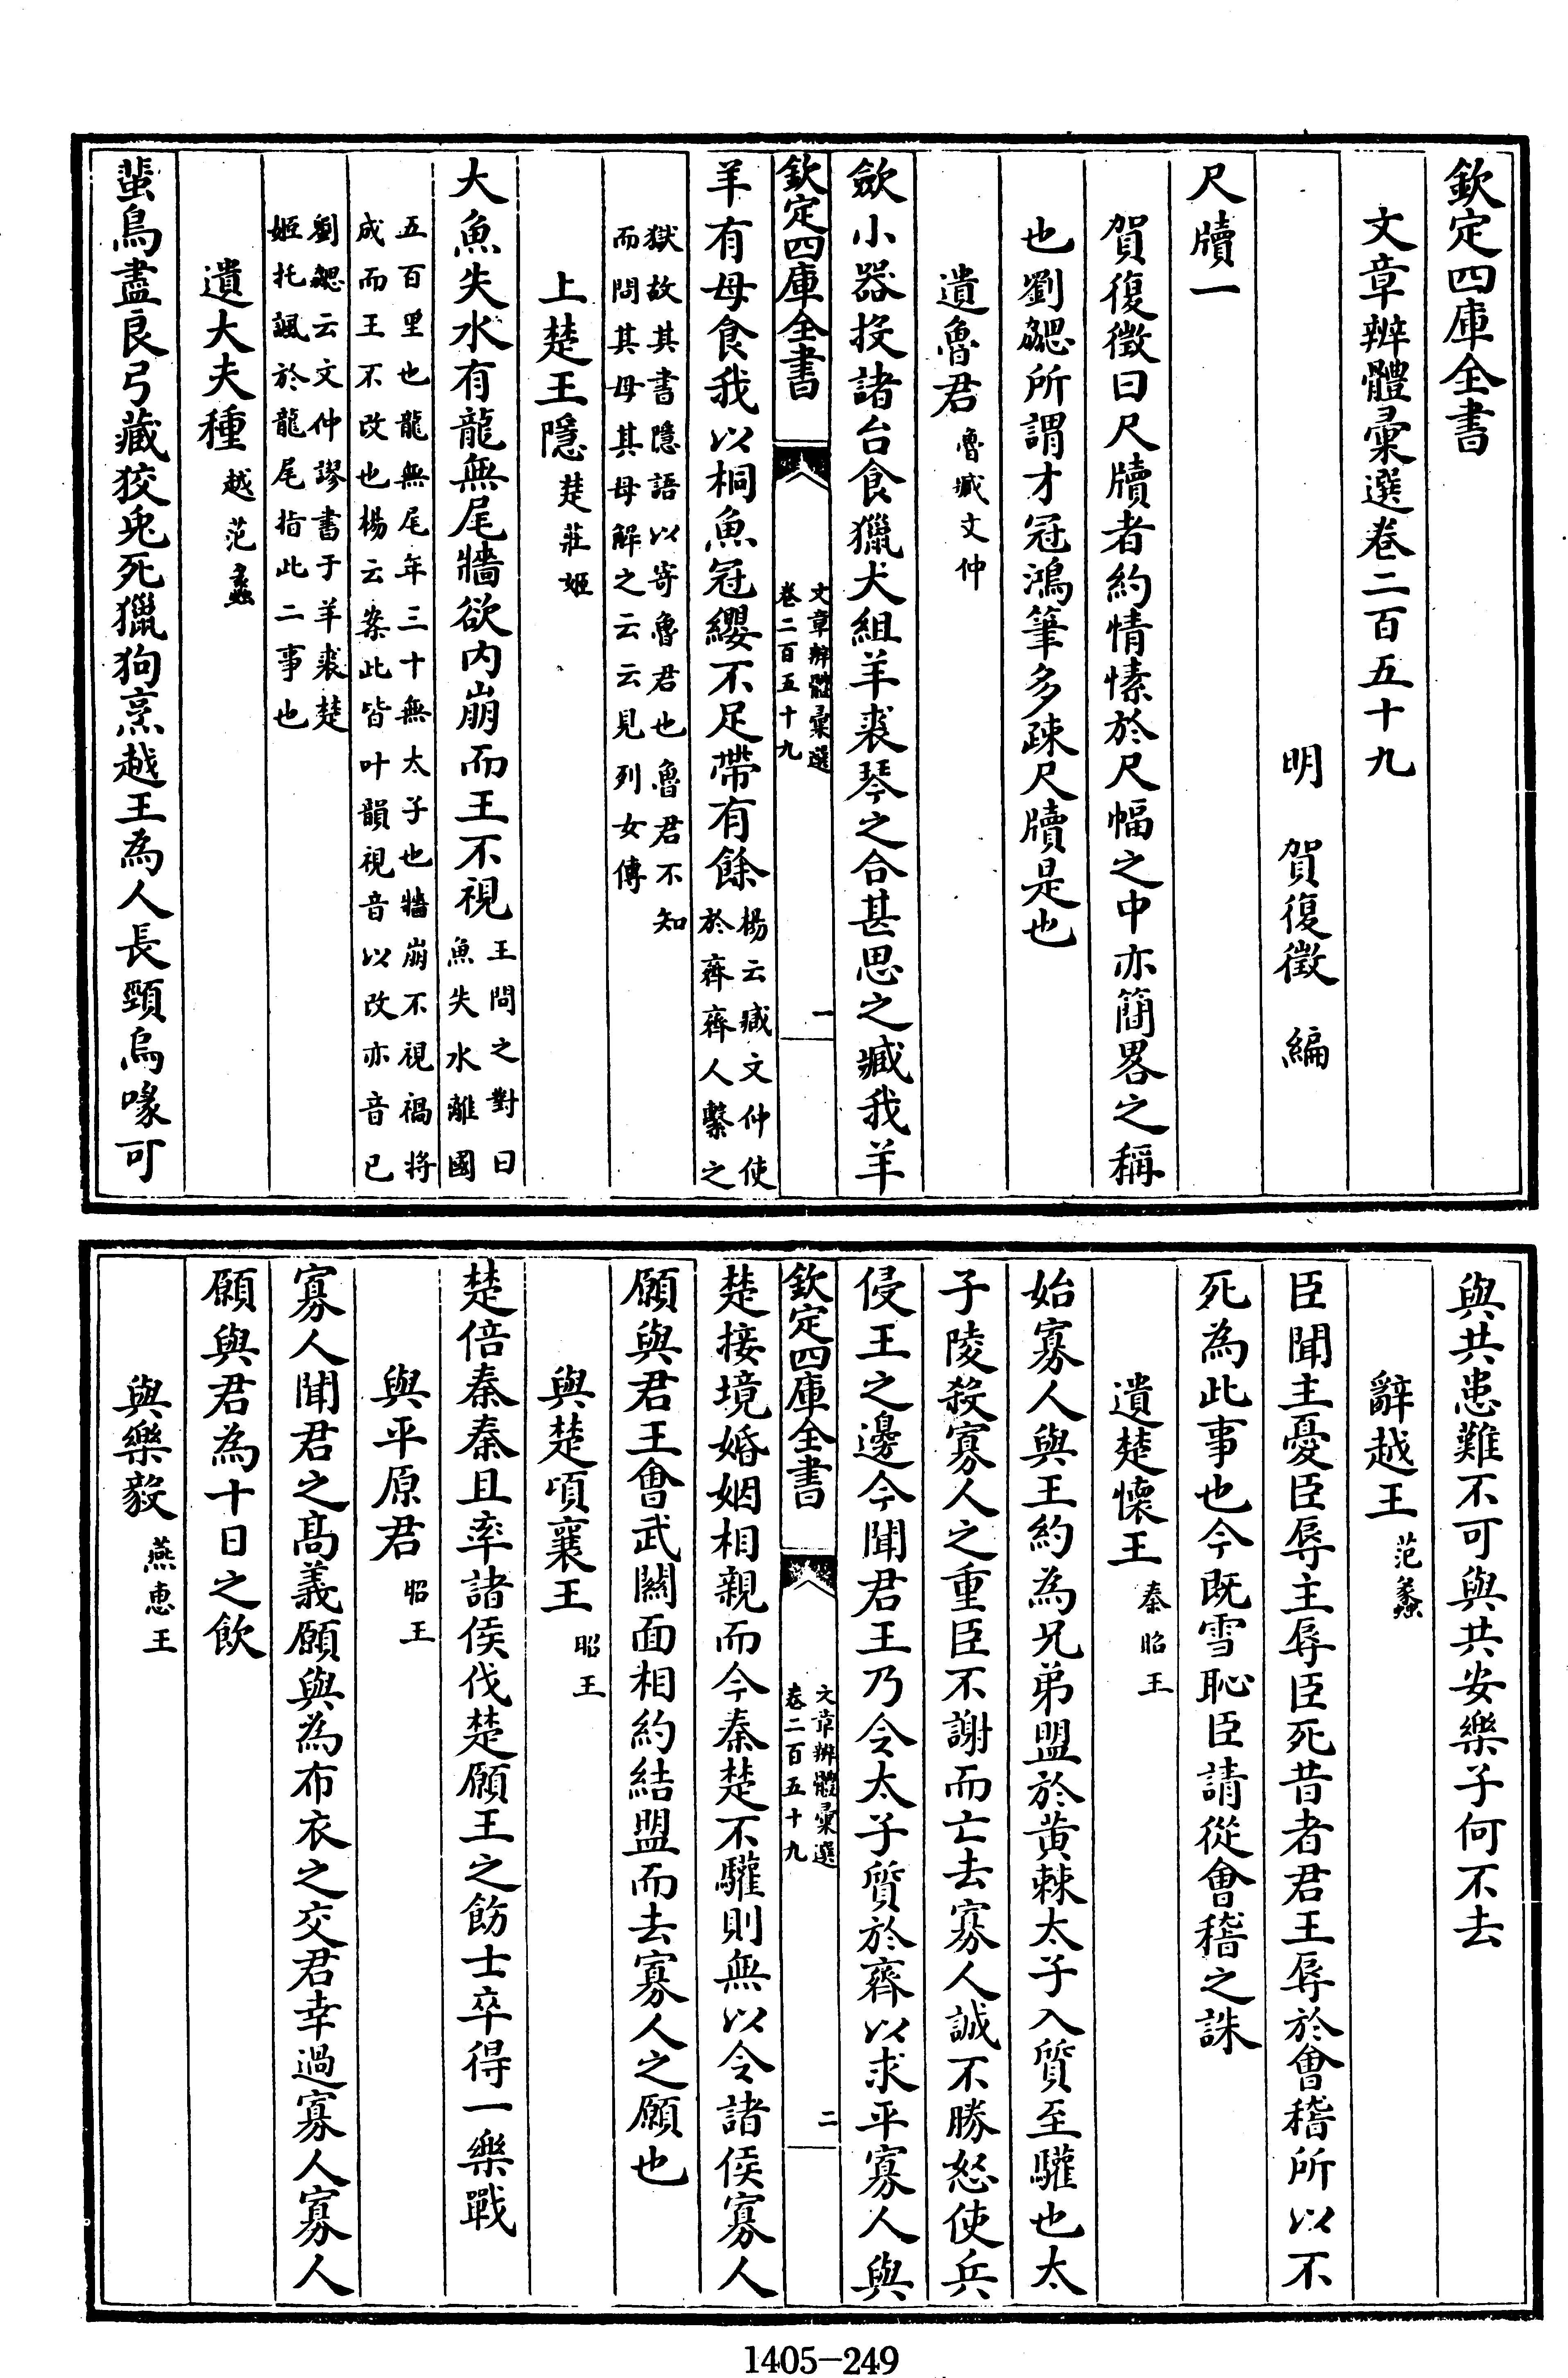 欽定四庫全書
文章辨體彙選卷二百五十九
明　賀復徵　編
尺牘一
賀復徵曰尺牘者約情愫於尺幅之中亦簡畧之稱
也劉勰所謂才冠鴻筆多疎尺牘是也
遺魯君魯臧文仲
歛小器投諸台食獵犬組羊裘琴之合甚思之臧我羊
欽定四庫全書
文章辨體彙選
卷二百五十九
一
羊有母食我以桐魚冠纓不足帶有餘
楊云臧文仲使
於齊齊人繫之
獄故其書隱語以寄魯君也魯君不知
而問其母其母解之云云見列女傳
上楚王隱楚莊姬
大魚失水有龍無尾牆欲內崩而王不視
王問之對曰
魚失水離國
五百里也龍無尾年三十無太子也牆崩不視禍將
成而王不改也楊云案此皆叶韻視音以改亦音已
劉勰云文仲謬書于羊裘楚
姬托諷於龍尾指此二事也
遺大夫種越范蠡
蜚鳥盡良弓藏狡兎死獵狗烹越王為人長頸烏喙可
與共患難不可與共安樂子何不去
辭越王范蠡
臣聞主憂臣辱主辱臣死昔者君王辱於會稽所以不
死為此事也今既雪恥臣請從會稽之誅
遺楚懷王秦昭王
始寡人與王約為兄弟盟於黃棘太子入質至驩也太
子陵殺寡人之重臣不謝而亡去寡人誠不勝怒使兵
侵王之邊今聞君王乃令太子質於齊以求平寡人與
欽定四庫全書
文章辨體彙選
卷二百五十九
二
楚接境婚姻相親而今秦楚不驩則無以令諸侯寡人
願與君王會武關面相約結盟而去寡人之願也
與楚頃襄王昭王
楚倍秦秦且率諸侯伐楚願王之飭士卒得一樂戰
與平原君昭王
寡人聞君之高義願與為布衣之交君幸過寡人寡人
願與君為十日之飲
與樂毅燕惠王
1405-249